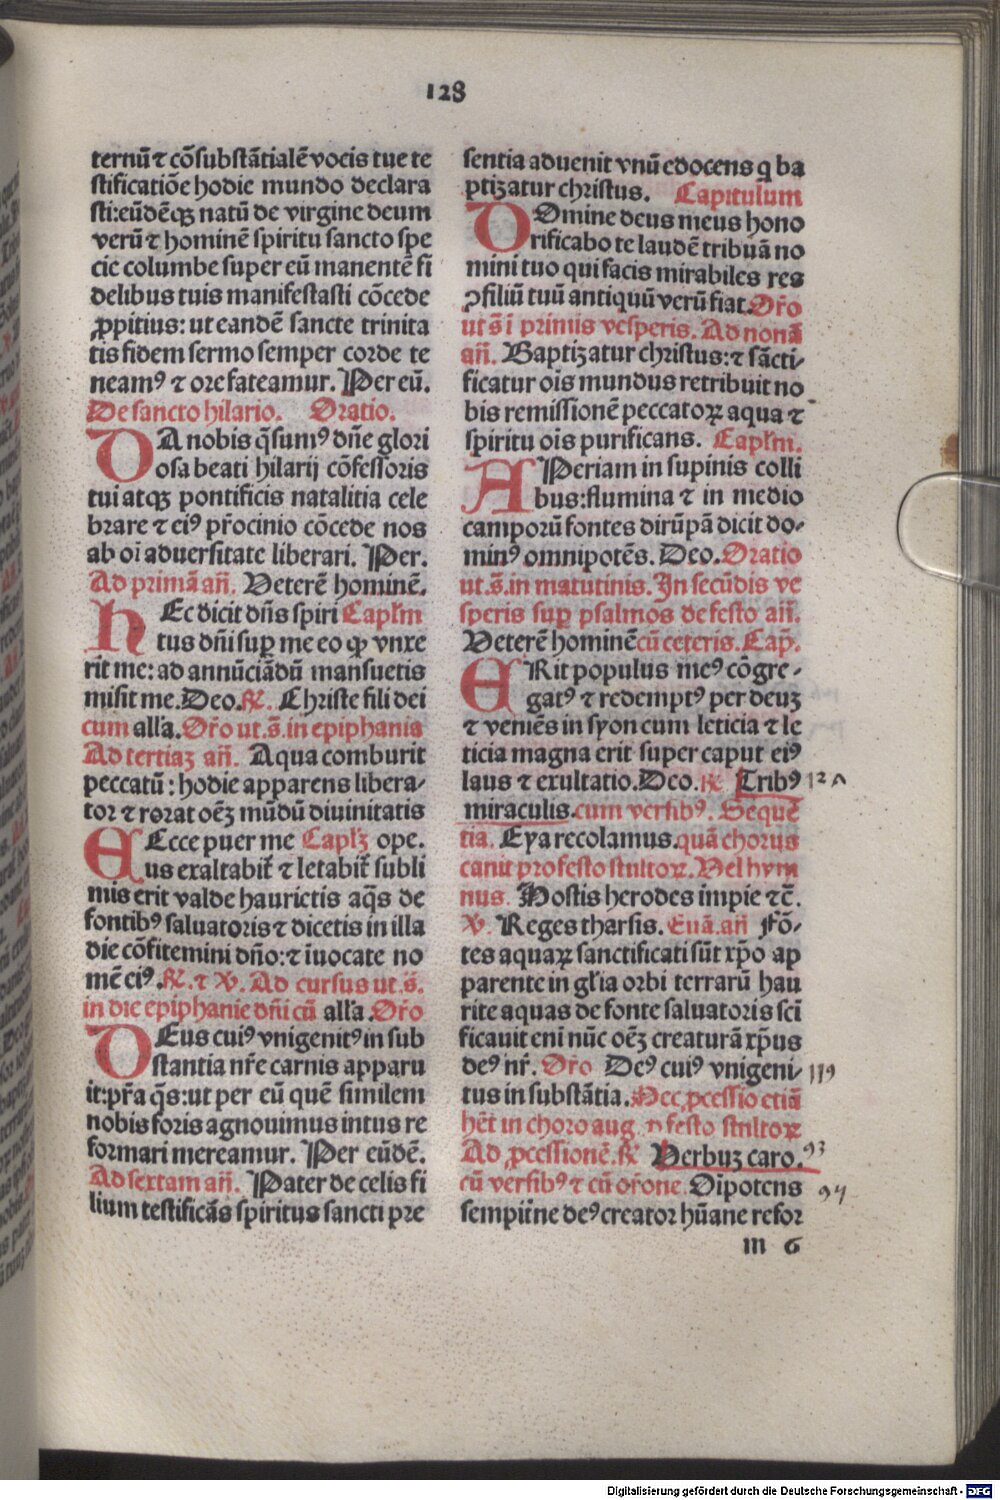 128
ternū ⁊ cōsubstātialē vocis tue te
stificatiōe hodie mundo declara
sti: eūdēqꝫ natū de virgine deum
verū ⁊ hominē spiritu sancto spe
cie columbe super eū manentē fi
delibus tuis manifestasti cōcede
ꝓpitius: ut eandē sancte trinita
tis fidem sermo semper corde te
neamꝰ ⁊ ore fateamur. Per eū.
De sancto hilario. Oratio.
DA nobis q̄sumꝰ dn̄e glori
osa beati hilarij cōfessoris
tui atqꝫ pontificis natalitia cele
brare ⁊ eiꝰ pr̄ocinio cōcede nos
ab oī aduersitate liberari. Per.
Ad primā an̄. Veterē hominē.
HEc dicit dn̄s spiri Capl'm
tus dn̄i suꝑ me eo ꝙ vnxe
rit me: ad annūciādū mansuetis
misit me. Deo. ℟. Christe fili dei
cum alla. Or̄o ut. s̄. in epiphania
Ad tertiaꝫ an̄. Aqua comburit
peccatū: hodie apparens libera⸗
tor ⁊ rorat oēꝫ mūdū diuinitatis
EEcce puer me Capl'ꝫ ope.
us exaltabit̄ ⁊ letabit̄ subli
mis erit valde haurietis aq̄s de
fontibꝰ saluatoris ⁊ dicetis in illa
die cōfitemini dn̄o: ⁊ īuocate no
mē eiꝰ. ℟. ⁊ ℣. Ad cursus ut. s̄.
in die epiphanie dn̄i cū alla. Or̄o
DEus cuiꝰ vnigenitꝰ in sub
stantia nr̄e carnis apparu
it: pr̄a q̄s: ut per eū quē similem
nobis foris agnouimus intus re
formari mereamur. Per eūdē.
Ad sextam an̄. Pater de celis fi
lium testificās spiritus sancti pre
sentia aduenit vnū edocens q ba
ptiꝫatur christus. Capitulum
DOmine deus meus hono
rificabo te laudē tribuā no
mini tuo qui facis mirabiles res
ꝯsiliū tuū antiquū verū fiat. Or̄o
ut s̄ ī primis vesperis. Ad nonā
an̄. Baptiꝫatur christus: ⁊ sācti⸗
ficatur ois mundus retribuit no
bis remissionē peccatoꝝ aqua ⁊
spiritu ois purificans. Capl'm.
APeriam in supinis colli
bus: flumina ⁊ in medio
camporū fontes dirūpā dicit do⸗
minꝰ omnipotēs. Deo. Oratio
ut. s̄. in matutinis. In secūdis ve
speris suꝑ psalmos de festo an̄.
Veterē hominē cū ceteris. Cap̄.
ERit populus meꝰ cōgre⸗
gatꝰ ⁊ redemptꝰ per deuꝫ
⁊ veniēs in syon cum leticia ⁊ le
ticia magna erit super caput eiꝰ
laus ⁊ exultatio. Deo. ℟ Tribꝰ
miraculis. cum versibꝰ. Sequē
tia. Eya recolamus. quā chorus
canit pro festo stultoꝝ. Vel hym
nus. Hostis herodes impie ⁊c̄.
℣. Reges tharsis. Euā. an̄ Fō⸗
tes aquaꝝ sanctificati sūt xp̄o ap
parente in gl'ia orbi terrarū hau
rite aquas de fonte saluatoris sci
ficauit eni nūc oēꝫ creaturā xp̄us
deꝰ nr̄. Or̄o Deꝰ cuiꝰ vnigeni⸗
tus in substātia. Nec ꝓcessio etiā
hēt in choro aug. ī festo stultoꝝ
Ad ꝓcessionē. ℟ Verbuꝫ caro.
cū versibꝰ ⁊ cū or̄one. Oīpotens
sempit̄ne deꝰ creator hūane refor
m 6
119
93
94
Digitalisierung gefördert durch die Deutsche Forschungsgemeinschaft - DFG